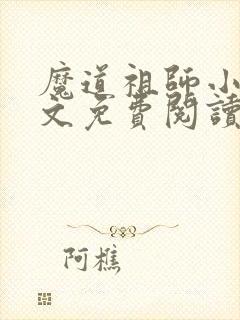 魔道祖師小
文免費閱讀
阿樵